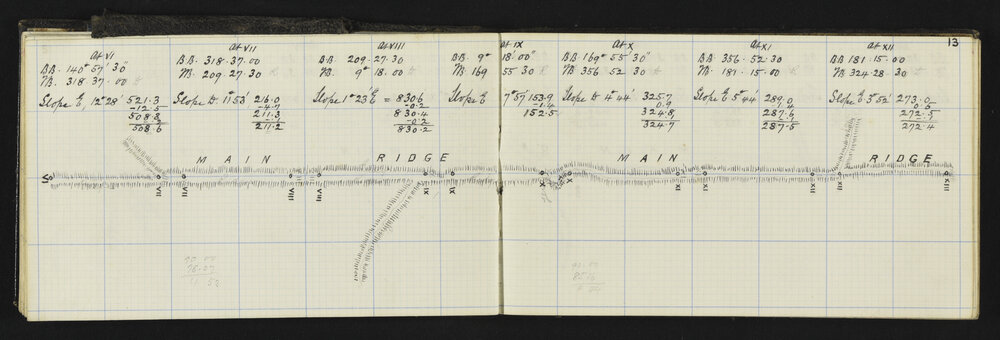 13
At VI
B.B. 140° 57' 30"
F.B. 318. 37. 00
Slope E 12° 28' 521.3
-12.5
508.8
508.6
At VII
B.B. 318. 37. 00
F.B. 209. 27. 30
Slope D 11° 53' 216.0
-4.7
211.3
-.1
211.2
At VIII
B.B. 209. 27. 30
F.B. 9° 18. 00
Slope 1° 23' E = 830.6
-0.2
830.4
-0.2
830.2
At IX
B.B. 9° 18' 00"
F.B. 169 55 30
Slope E 7° 57' 153.9
-1.4
152.5
At X
B.B. 169° 55' 30"
F.B. 356. 52. 30
Slope D 4° 44' 325.7
0.9
324.8
-.1
324.7
At XI
B.B. 356. 52. 30
F.B. 181. 15. 00
Slope E 5° 44' 289.0
1.4
287.6
-.1
287.5
At XII
B.B. 181. 15. 00
F.B. 324. 28. 30
Slope E 3° 52' 273.0
0.5
272.5
-.1
272.4
MAIN RIDGE MAIN RIDGE
VII VII VIII VIII IX IX X X XI XI XII XII XIII